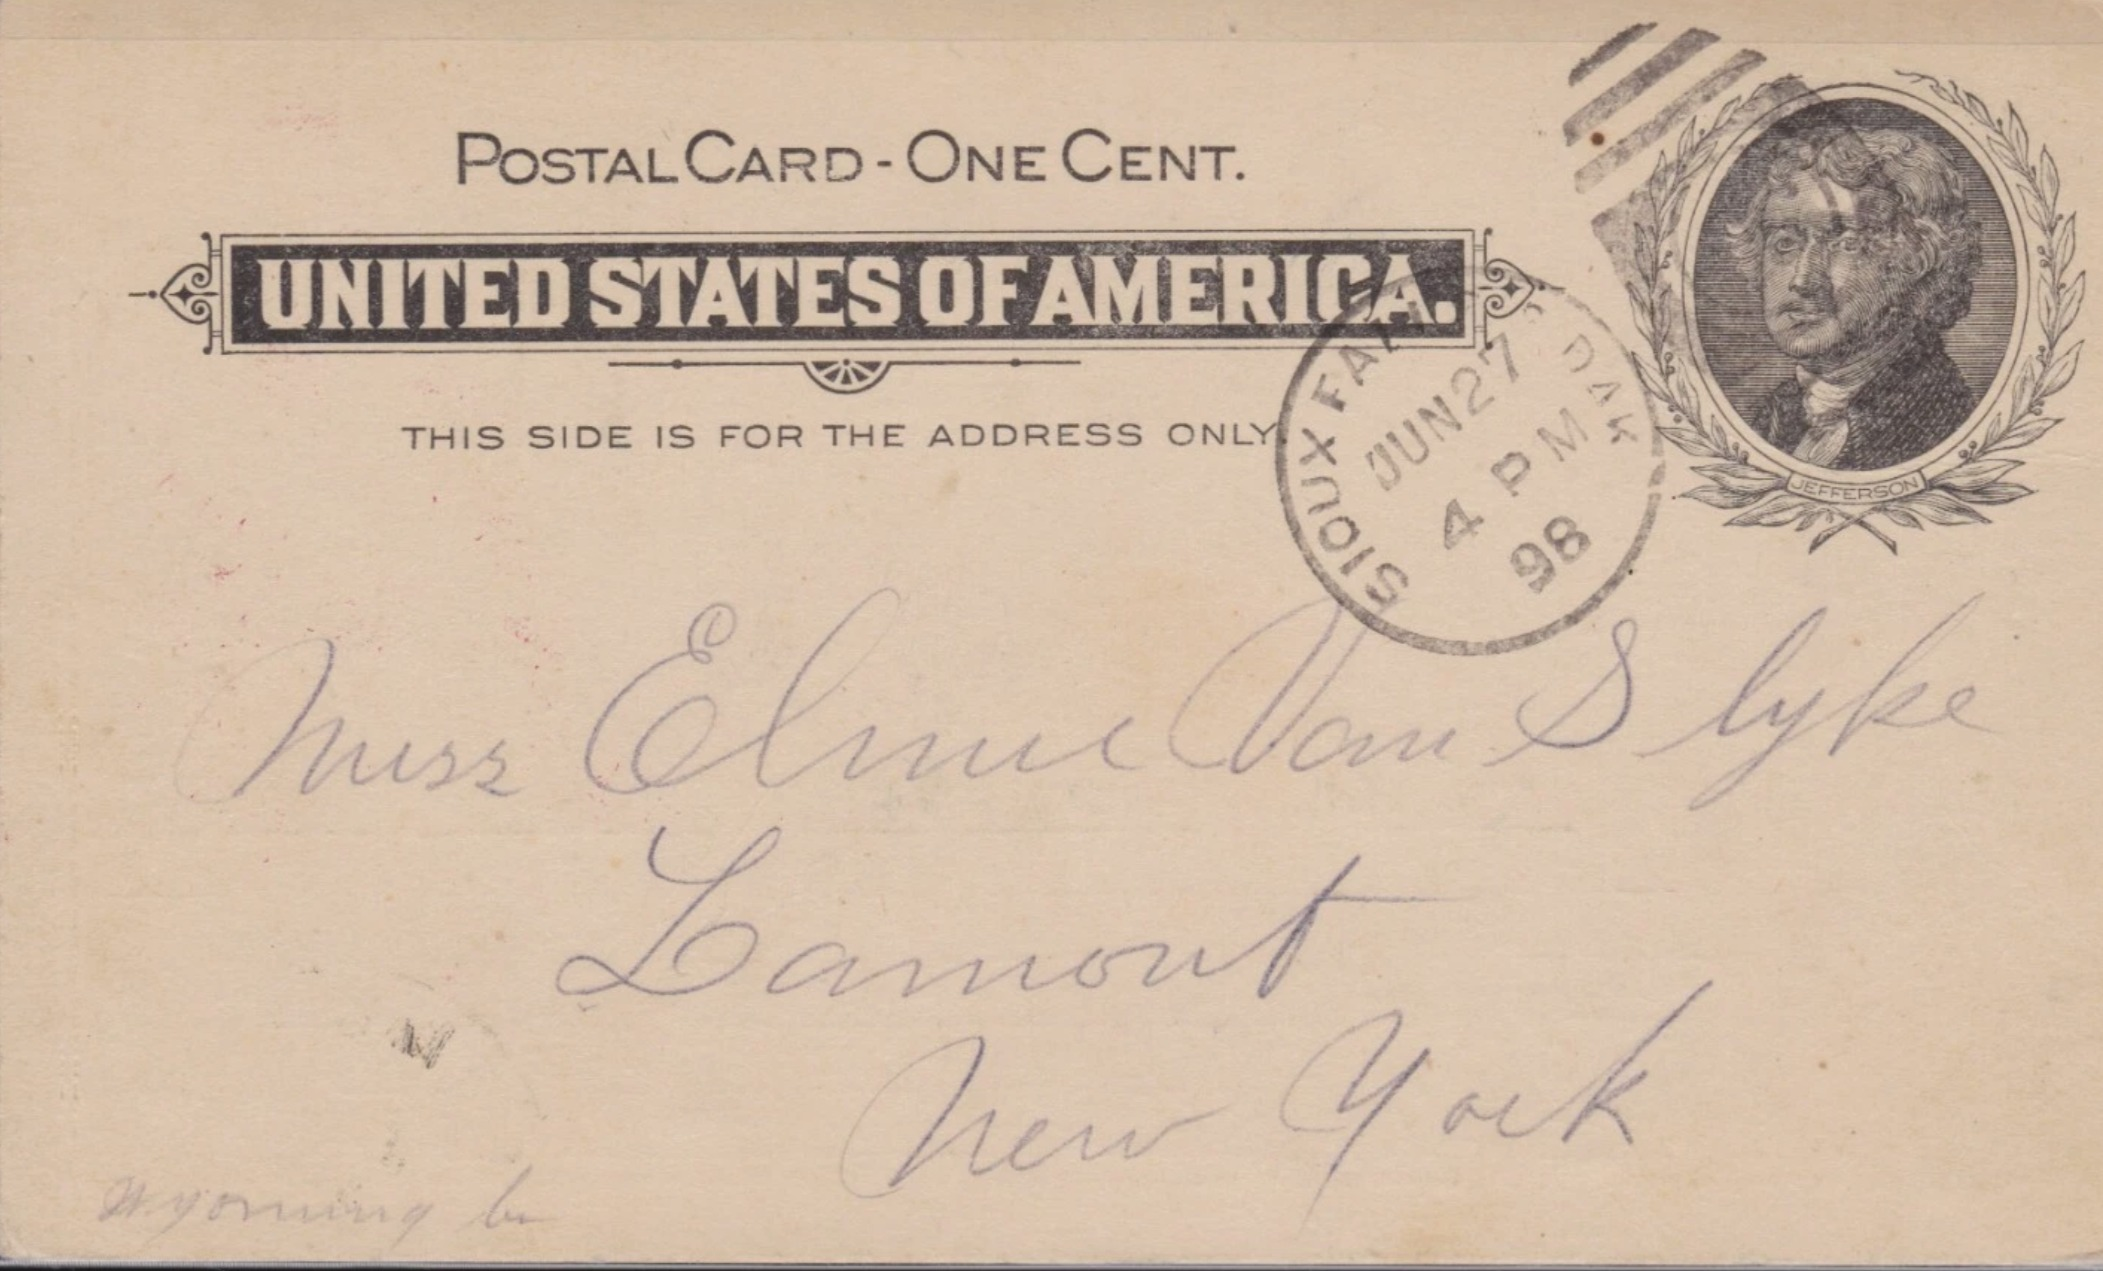 POSTAL CARD - ONE CENT.
UNITED STATES OF AMERICA.
THIS SIDE IS FOR THE ADDRESS ONLY.
JEFFERSON
SIOUX FALLS DAK
JUN 27
4 PM
98
Miss Elmie Van Slyke
Lamont
New York
Wyoming